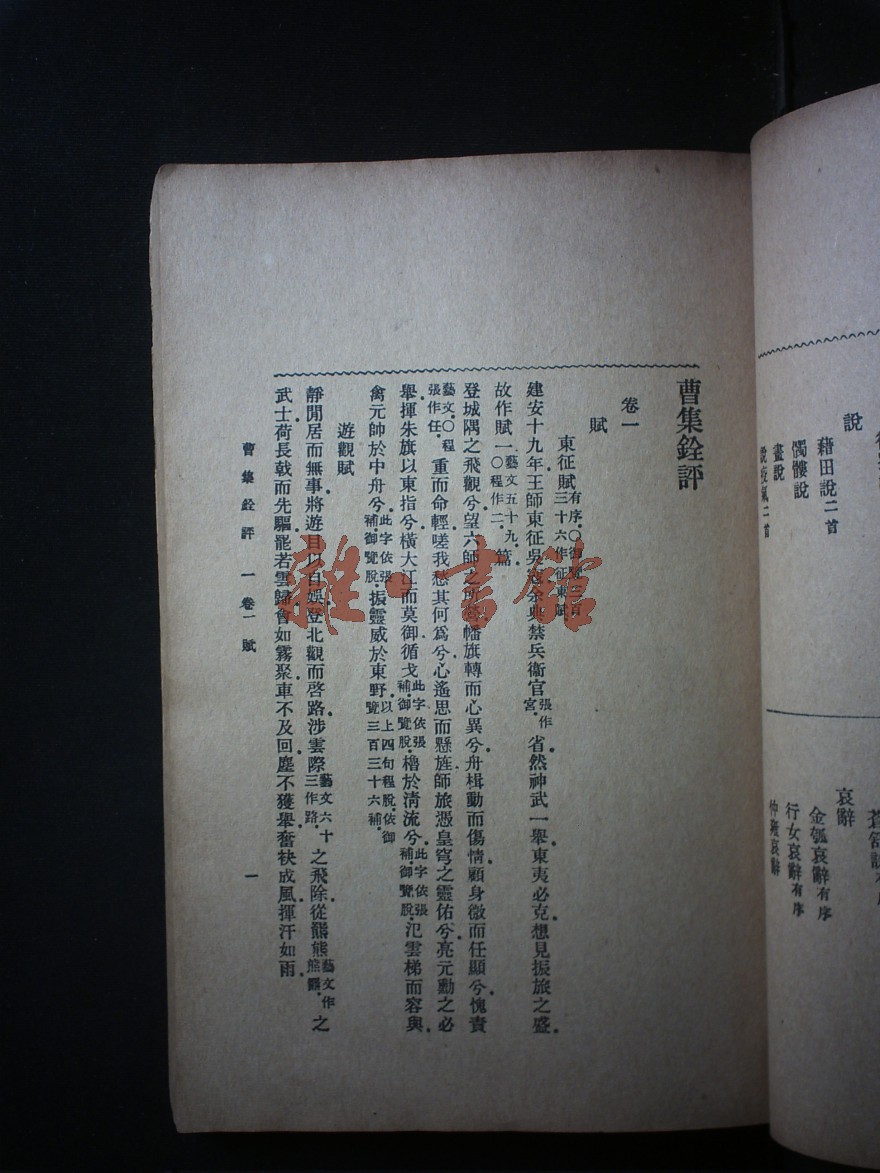 說
藉田說二首
髑髏說
畫說
說疫氣二首
哀辭
金瓠哀辭有序
行女哀辭有序
仲雍哀辭
曹集銓評
卷一
賦
東征賦有序。〇御覽三百三十六作征東賦。
建安十九年王師東征吳寇余典禁兵衞官張作宮。省然神武一舉東夷必克想見振旅之盛
故作賦一〇藝文五十九。程作二。篇
登城隅之飛觀兮望六師之所營幡旗轉而心異兮舟楫動而傷情顧身微而任顯兮愧責
藝文。〇程張作任。重而命輕嗟我愁其何爲兮心遙思而懸旌師旅憑皇穹之靈佑兮亮元勳之必
舉揮朱旗以東指兮橫大江而莫御循戈此字依張補。御覽脫。櫓於淸流兮此字依張補。御覽脫。氾雲梯而容與
禽元帥於中舟兮此字依張補。御覽脫。振靈威於東野以上四句程脫。依御覽三百三十六補。
遊觀賦
靜閒居而無事將遊目以自娛登北觀而啓路涉雲際藝文六十三作路。之飛除從羆熊藝文作熊羆。之
武士荷長戟而先驅罷若雲歸會如霧聚車不及回塵不獲舉奮袂成風揮汗如雨
曹集銓評 一 卷一 賦
一
雜·書館